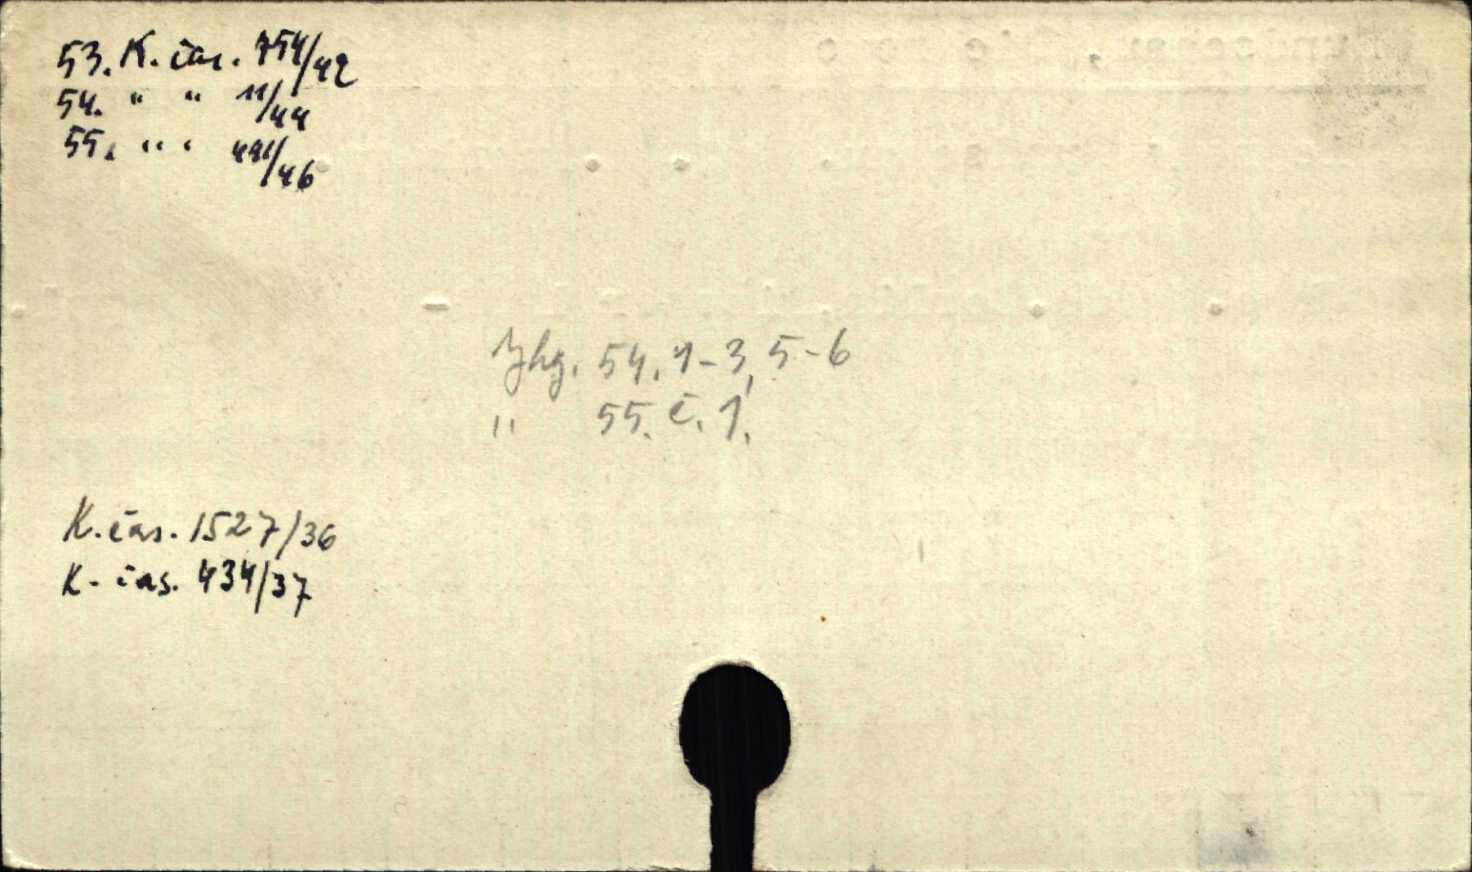 53. K. čas. 754/42
54. " " 11/44
55. " " 491/46
Jhg. 54, 1-3, 5-6
" 55. č. 1.
K. čas. 1527/36
K. čas. 434/37